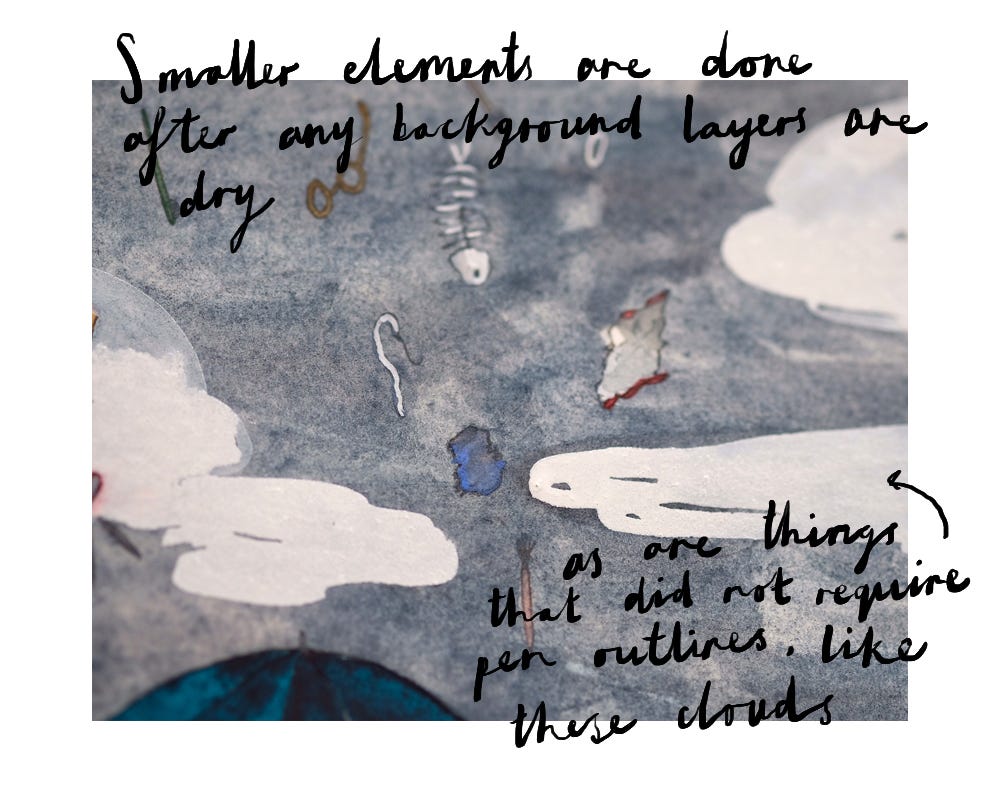 Smaller elements are done
after any background layers are
dry
as are things
that did not require
pen outlines, like
these clouds